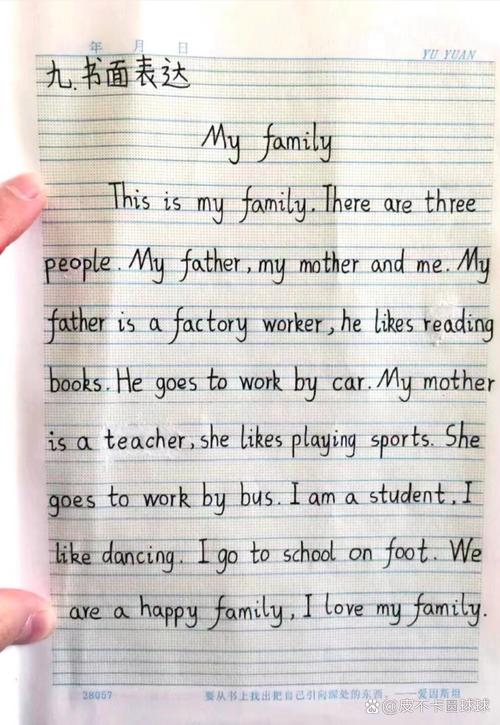 年 月 日
YU YUAN
九.书面表达
My family
This is my family. There are three
people. My father, my mother and me. My
father is a factory worker, he likes reading
books. He goes to work by car. My mother
is a teacher, she likes playing sports. She
goes to work by bus. I am a student, I
like dancing. I go to school on foot. We
are a happy family, I love my family.
28057 要从书上找出把自己引向深处的东西。——爱因斯坦
@皮不卡圆球球